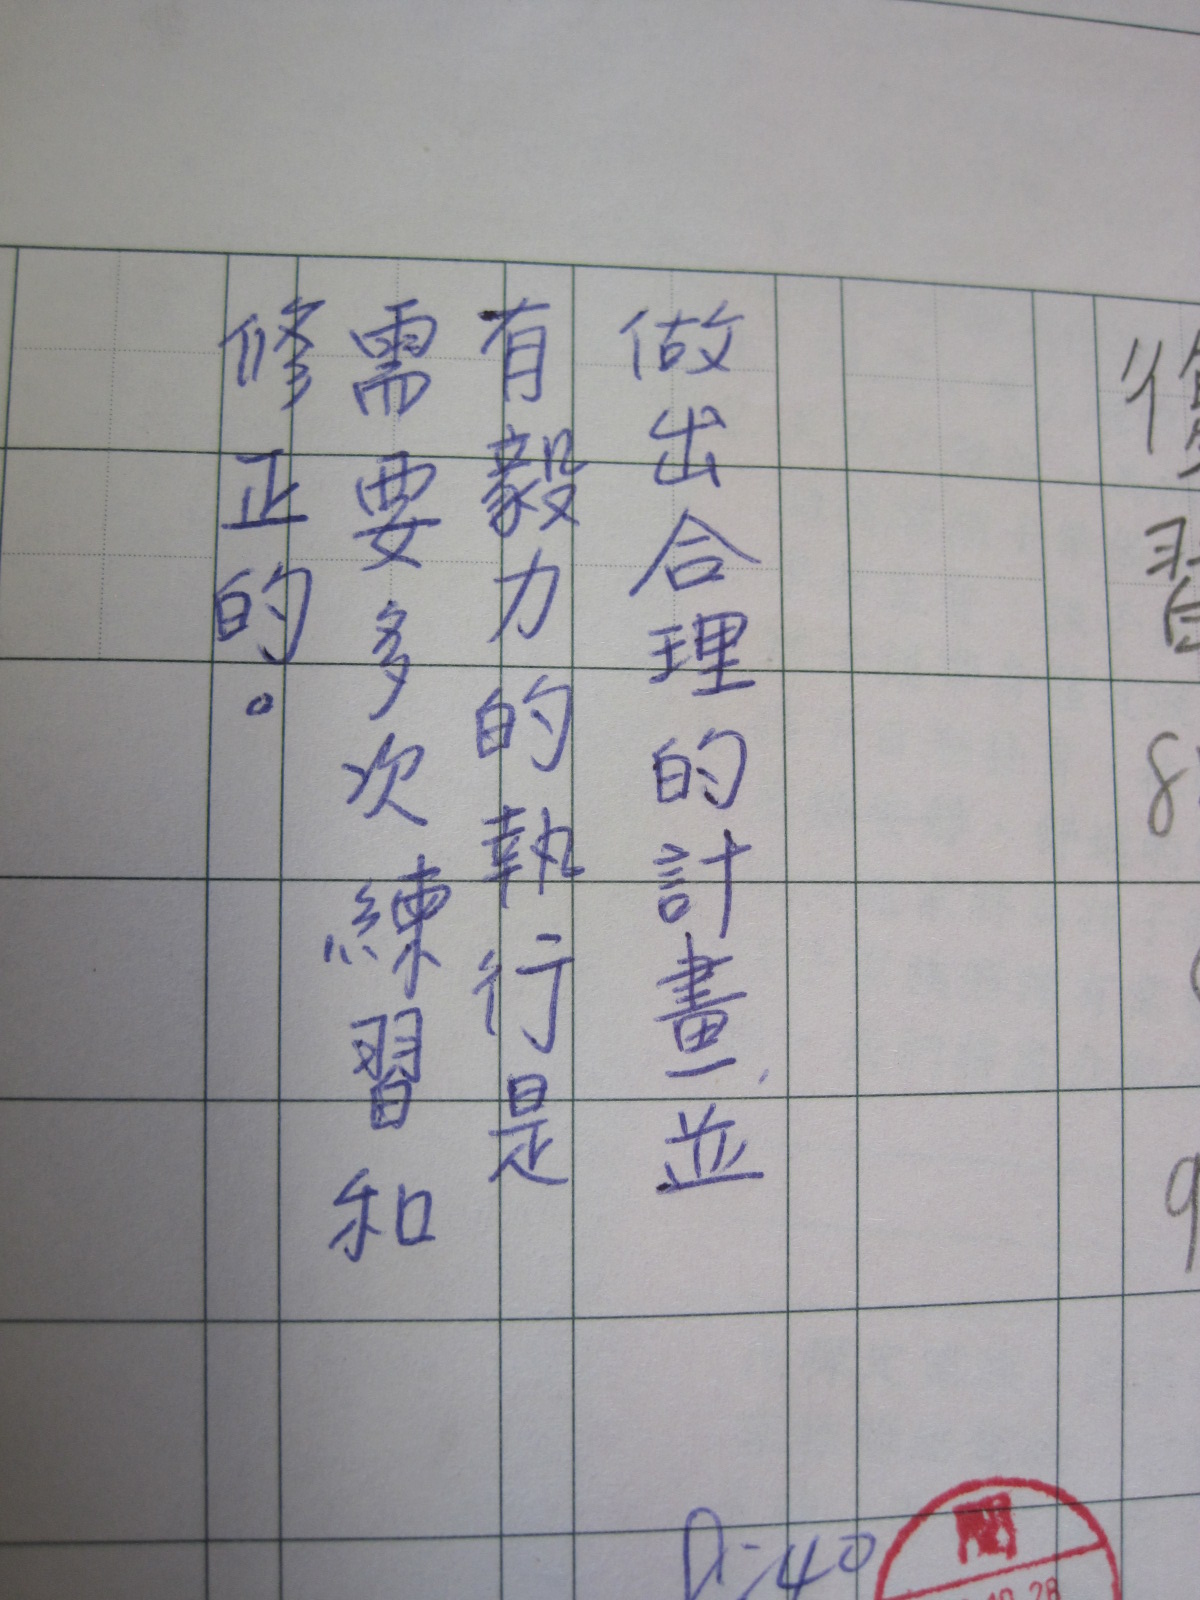 復習
8
9
做出合理的計畫,並
有毅力的執行是
需要多次練習和
修正的。
閱
10.28